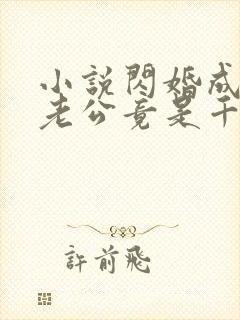 小說閃婚成
老公竟是千
許前飛